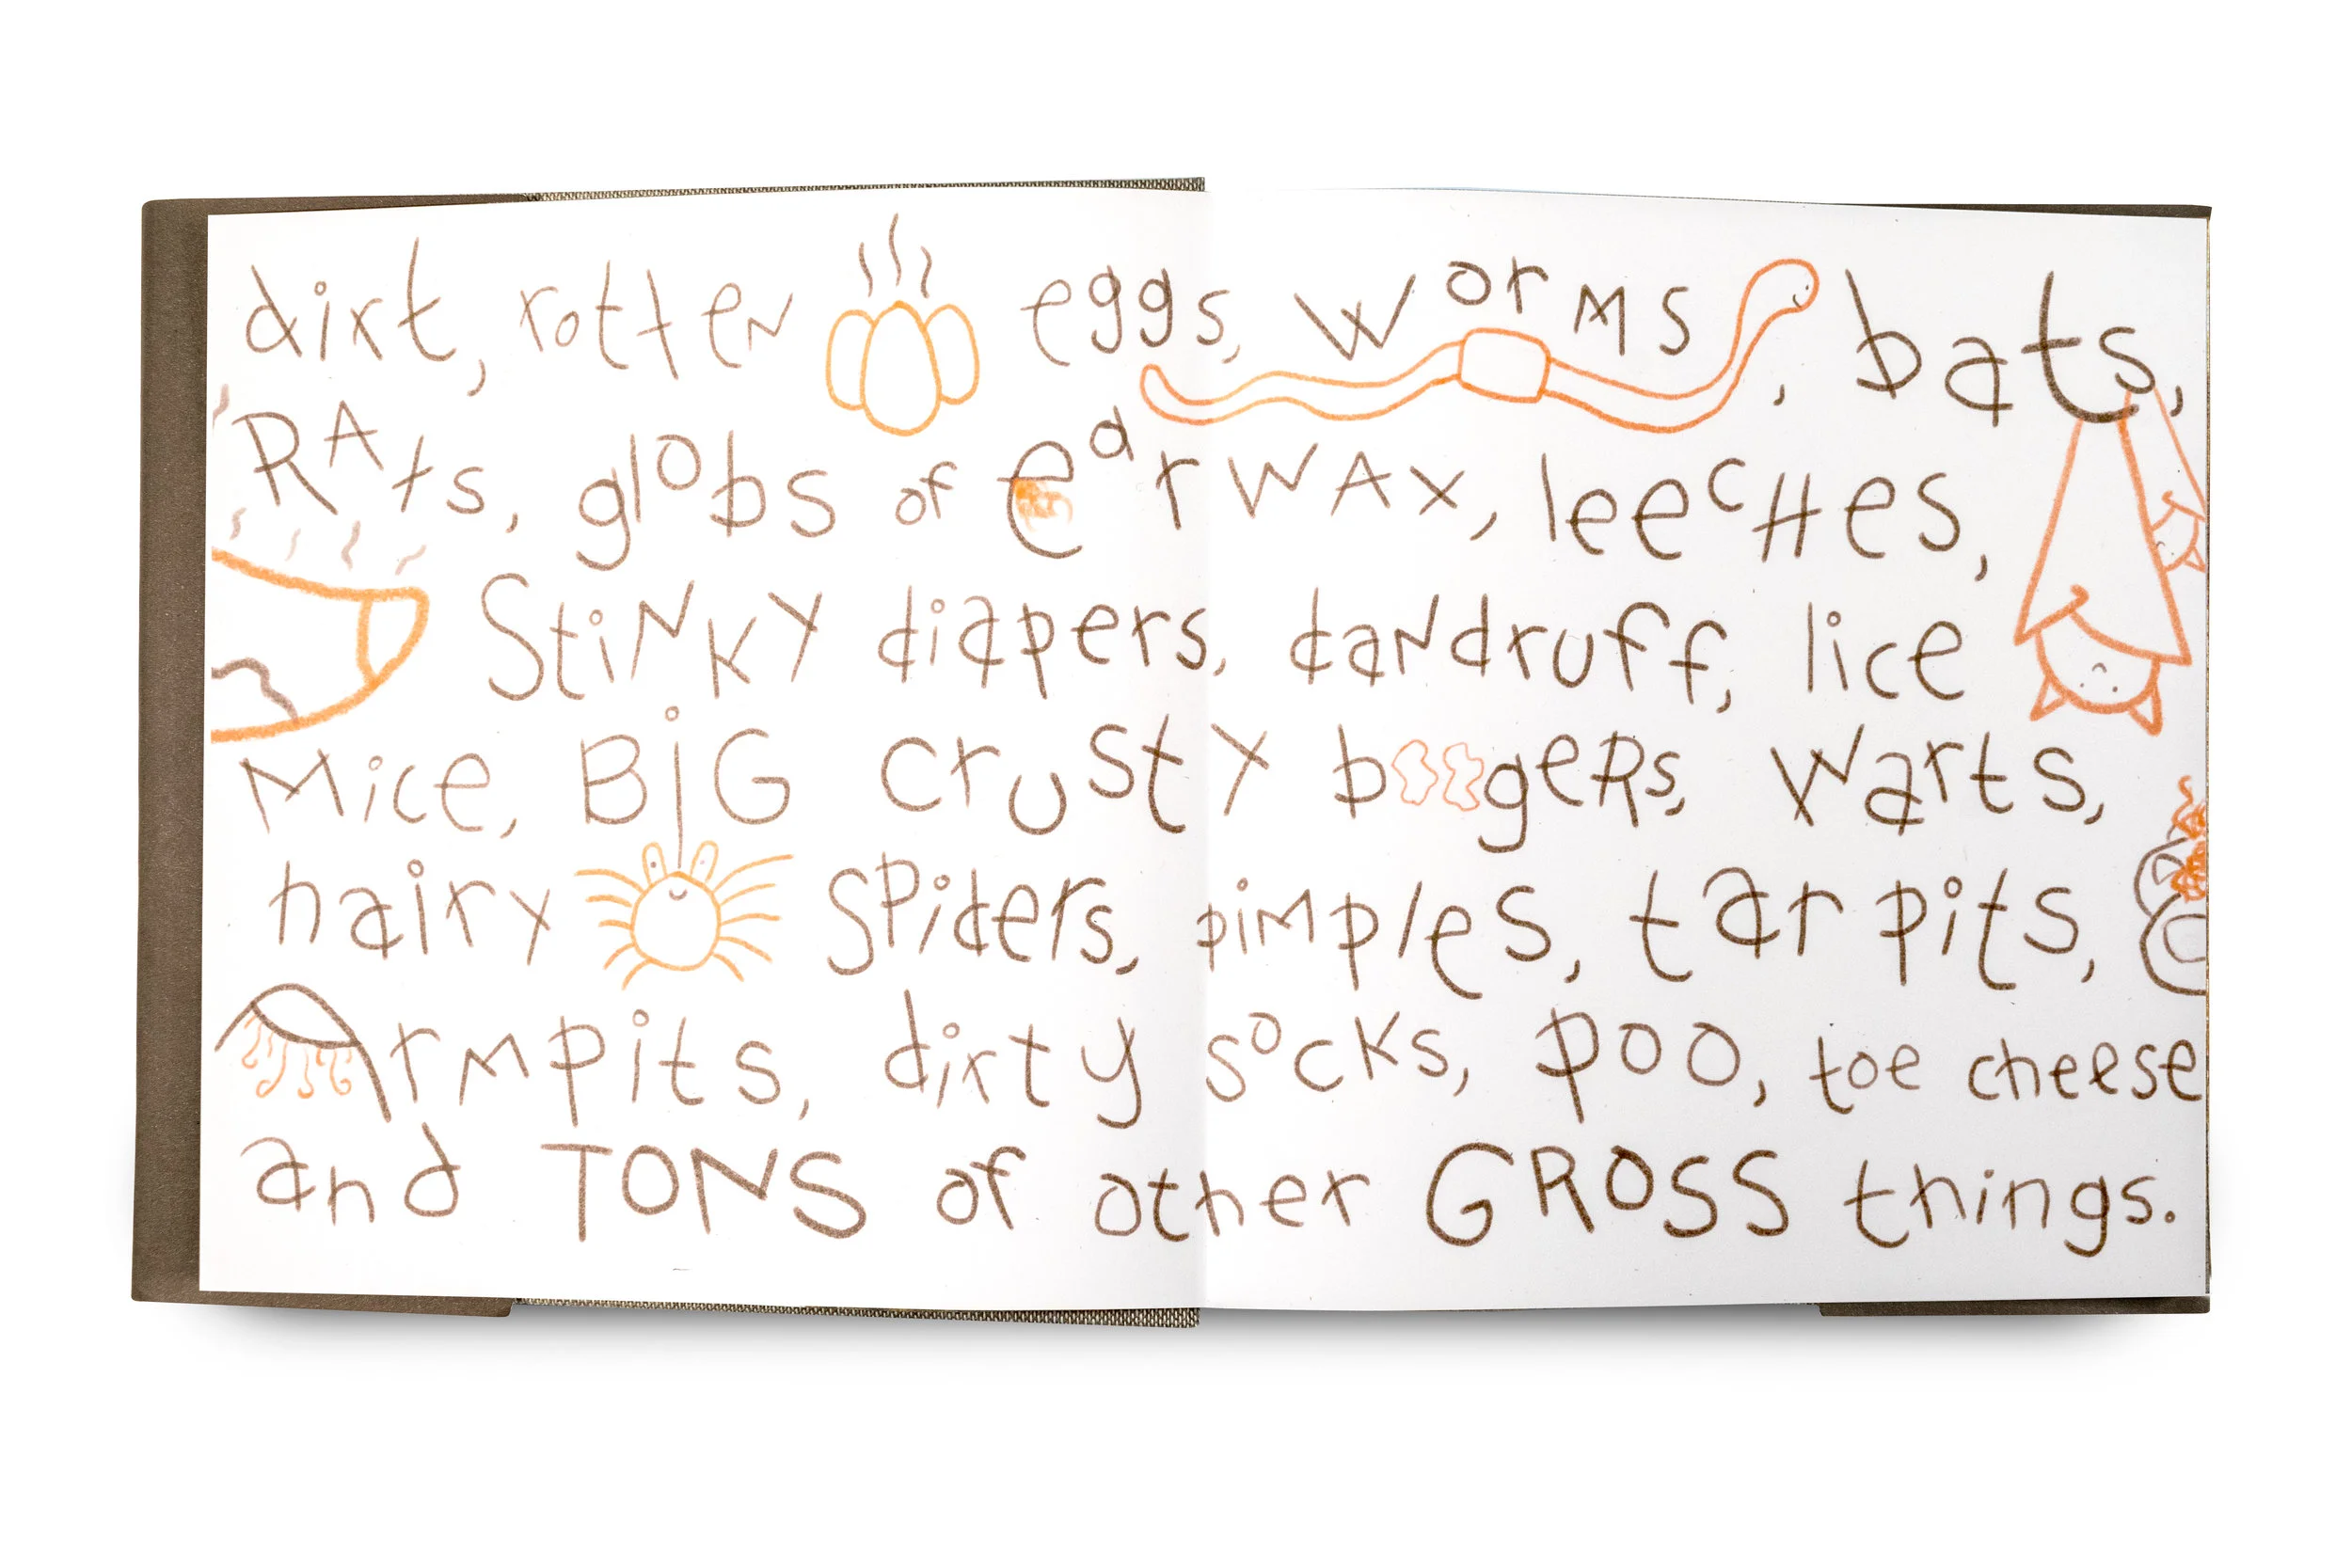 dirt, rotten eggs, worms, bats,
RAts, globs of earWAX, leecHes,
StiNKY diapers, daNdruff, lice
Mice, BiG crusty boogeRs, warts,
hairy spiders, piMples, tar pits,
ArMpits, dirty socKs, poo, toe cheese
and TONS of other GROSS things.